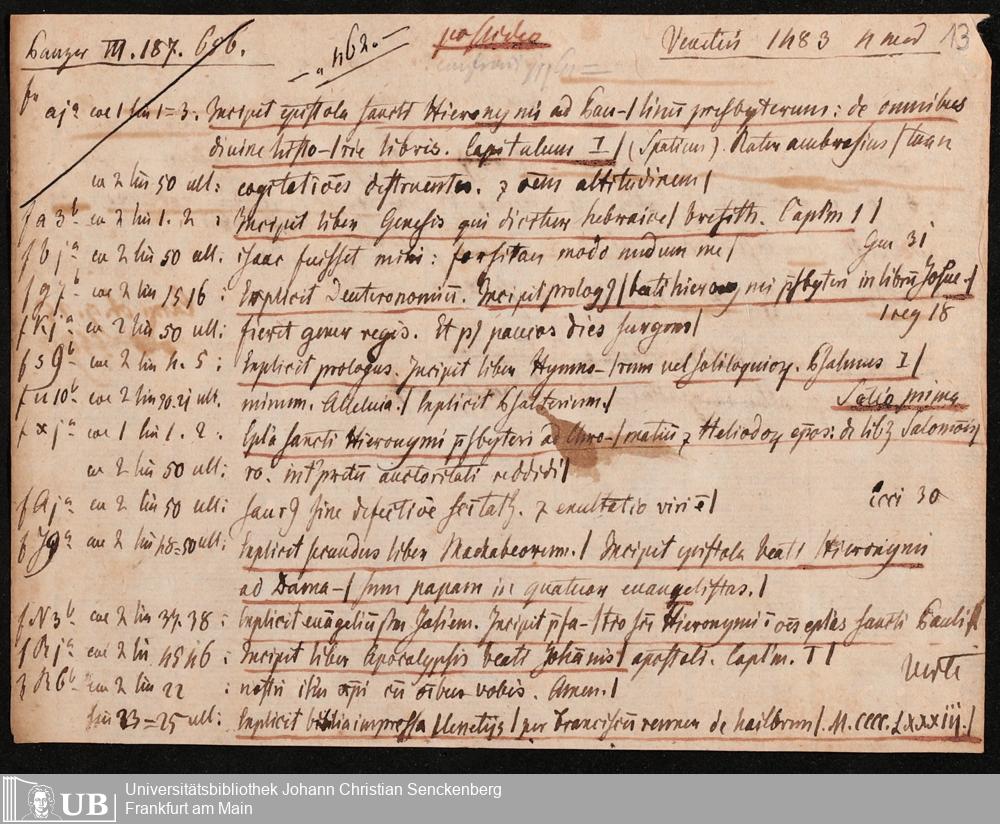 Panzer III. 187. 686.
462.-
possideo
Venetiis 1483 4 med 13
f. aj a col 1 lin 1=3. Incipit epistola sancti Hieronymi ad Pau-|linũ presbyterum: de omnibus
divine histo-|rie libris. Capitulum I | (Spatium). Rater ambrosius | tuum
co 2 lin 50 ult: cogitatiões destruentes. ⁊ oẽm altitudinem |
f a 3 b co 2 lin 1. 2 : Incipit liber Genesis qui dicitur hebraice | bresith. Capl'm 1 |
f b j a co 2 lin 50 ult. isaac fuisset mihi: forsitan modo nudum me | Gen 31
f g 7 b col 2 lin 15 16 : Explicit Deuteronomiũ. Incipit prolog9 | beati hieronymi p̃sbyteri in librũ Josue. |
f K j a co 2 lin 50 ult: fieret gener regis. Et p9 paucos dies surgens | 1 reg 18
f s 9 b co 2 lin 4. 5 : Explicit prologus. Incipit liber Hymno-|rum vel soliloquioꝝ. Psalmus I |
f u 10 b col 2 lin 20.21 ult. minum. Alleluia. | Explicit Psalterium. |
f x j a col 1 lin 1. 2. : Epl'a sancti Hieronymi p̃sbyteri ad Chro-|matiũ ⁊ Heliodoꝝ ep̃os: de libꝫ Salomoĩs
co 2 lin 50 ult: ro. int'pretũ auctoritati reddidi |
f A j a co 2 lin 50 ult: saur9 sine defectiõe scitatꝫ. ⁊ exultatio viri ẽ | Ecci 30
f J 9 a co 2 lin 48=50 ult: Explicit secundus liber Machabeorum. | Incipit epistola beati Hieronymi
ad Dama-|sum papam in quatuor euangelistas. |
f N 3 b col 2 lin 37. 38 : Explicit euãgeliũ s'm Joh'em. Incipit p̃fa-|tio sc̃i Hieronymi ĩ oẽs epl'as sancti Pauli |
f R j a col 2 lin 45 46 : Incipit liber Apocalypsis beati Johãnis | apostoli. Capl'm. I |
f R 6 b co 2 lin 22 : nostri ih'u xp̃i cũ oĩbus vobis. Amen. | verte
lin 23=25 ult: Explicit biblia impressa Venetijs | per Franciscũ renner de hailbrun |. M.CCCC.LXXXIIJ. |
UB Universitätsbibliothek Johann Christian Senckenberg
Frankfurt am Main